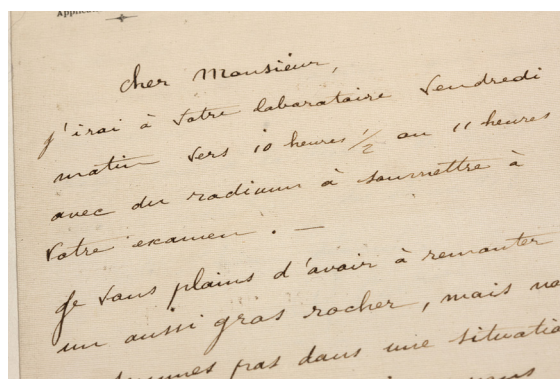 Cher Monsieur,
j'irai à votre laboratoire Vendredi
matin vers 10 heures 1/2 ou 11 heures
avec du radium à soumettre à
votre examen. —
Je vous plains d'avoir à remonter
un aussi gros rocher, mais no
pas dans une situatio